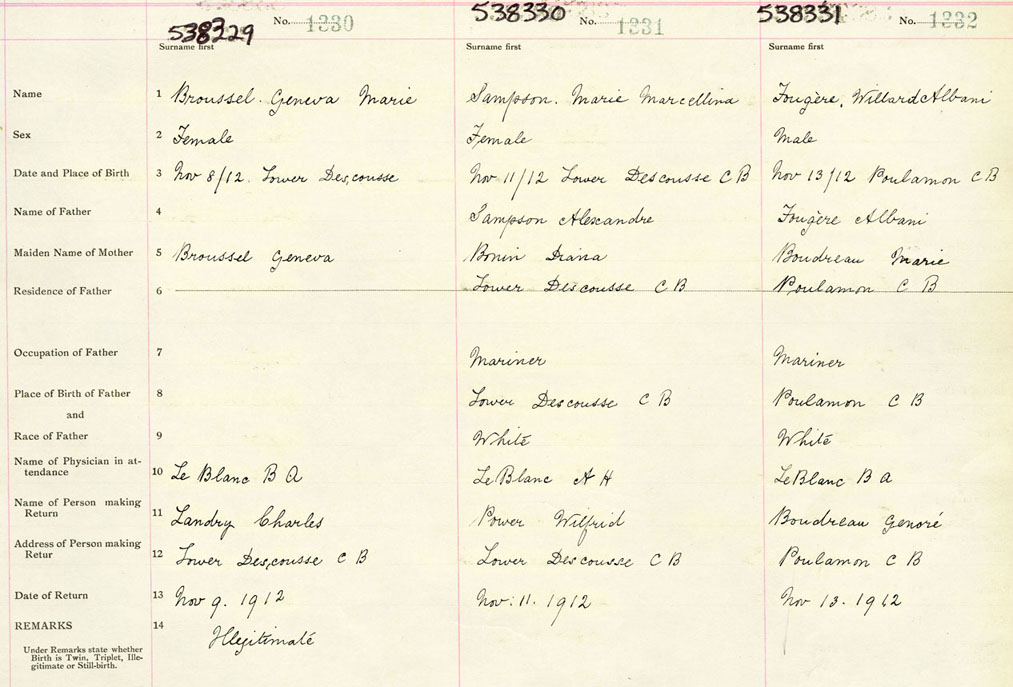 538329 No. 1330 538330 No. 1331 538331 No. 1332
Surname first Surname first Surname first
Name 1 Broussel. Geneva Marie Sampson. Marie Marcellina Fougère, Willard Albani
Sex 2 Female Female Male
Date and Place of Birth 3 Nov 8/12. Lower Descousse Nov 11/12 Lower Descousse C B Nov 13/12 Poulamon C B
Name of Father 4 Sampson Alexandre Fougère Albani
Maiden Name of Mother 5 Broussel Geneva Bonin Diana Boudreau Marie
Residence of Father 6 Lower Descousse C B Poulamon C B
Occupation of Father 7 Mariner Mariner
Place of Birth of Father 8 Lower Descousse C B Poulamon C B
and
Race of Father 9 White White
Name of Physician in at-
tendance 10 Le Blanc B A LeBlanc A H LeBlanc B A
Name of Person making
Return 11 Landry Charles Power Wilfrid Boudreau Genoré
Address of Person making
Retur 12 Lower Descousse C B Lower Descousse C B Poulamon C B
Date of Return 13 Nov 9. 1912 Nov: 11. 1912 Nov 13. 1912
REMARKS 14 Illegitimate
Under Remarks state whether
Birth is Twin, Triplet, Ille-
gitimate or Still-birth.